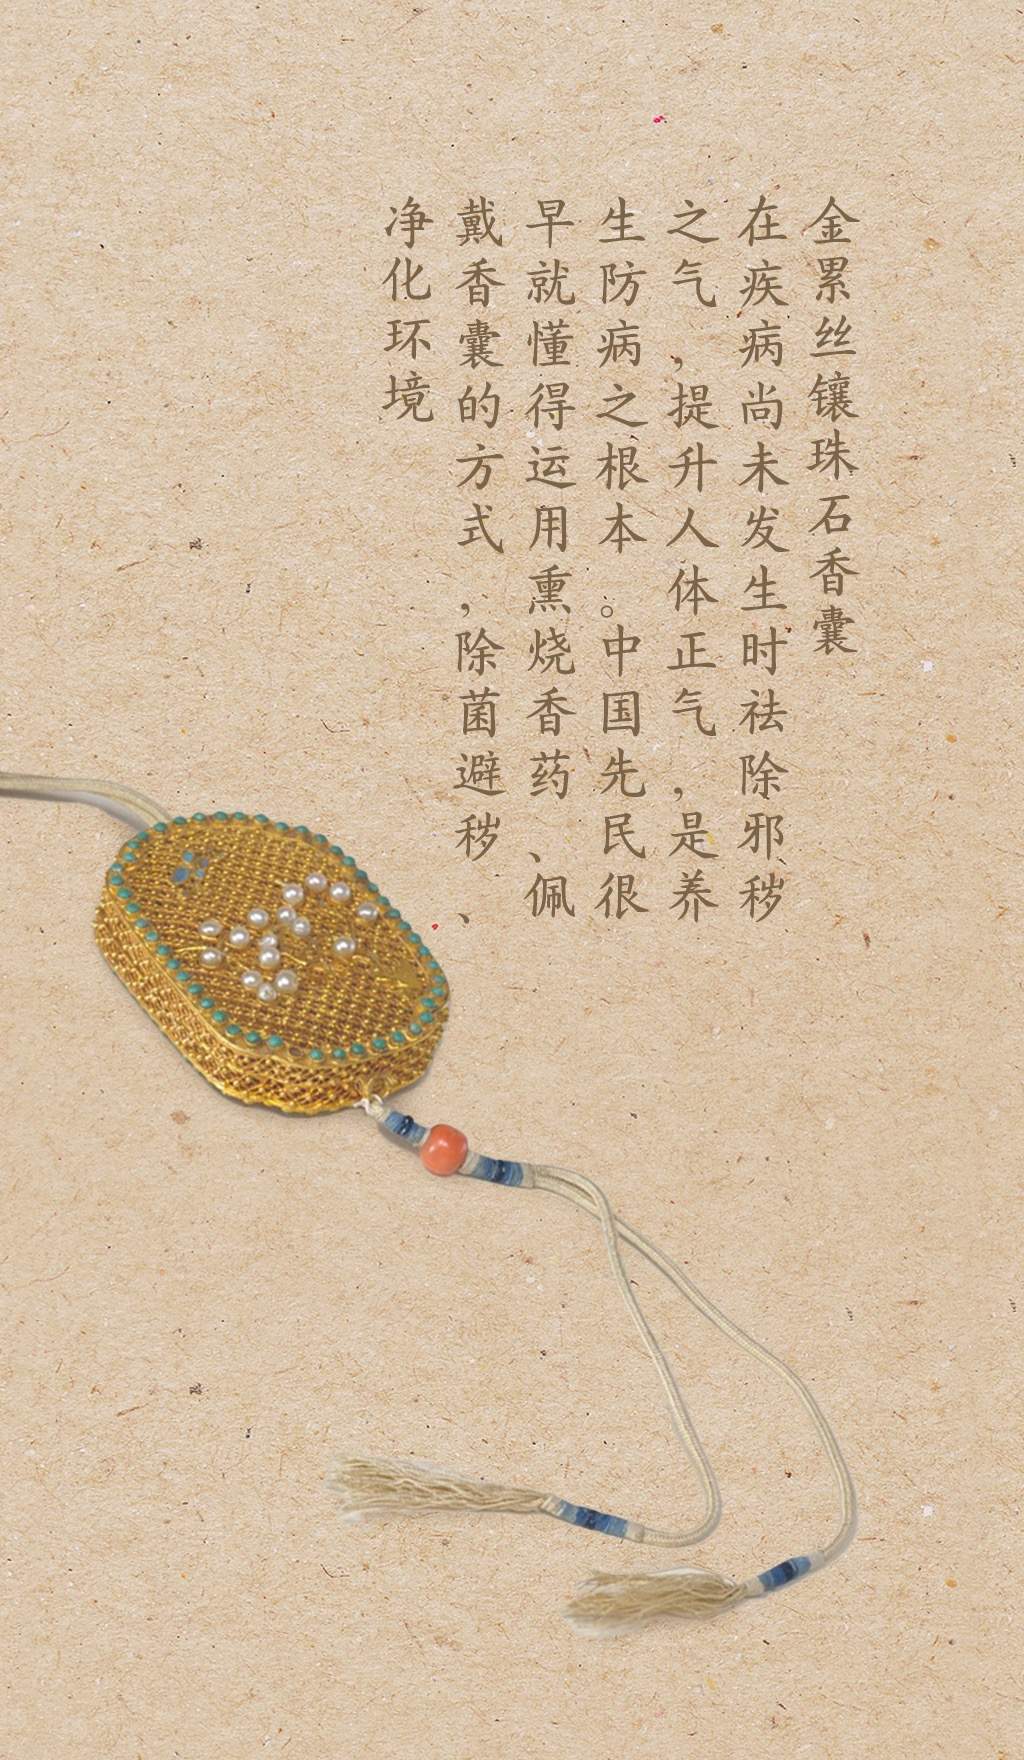 金累丝镶珠石香囊
在疾病尚未发生时祛除邪秽
之气，提升人体正气，是养
生防病之根本。中国先民很
早就懂得运用熏烧香药、佩
戴香囊的方式，除菌避秽、
净化环境